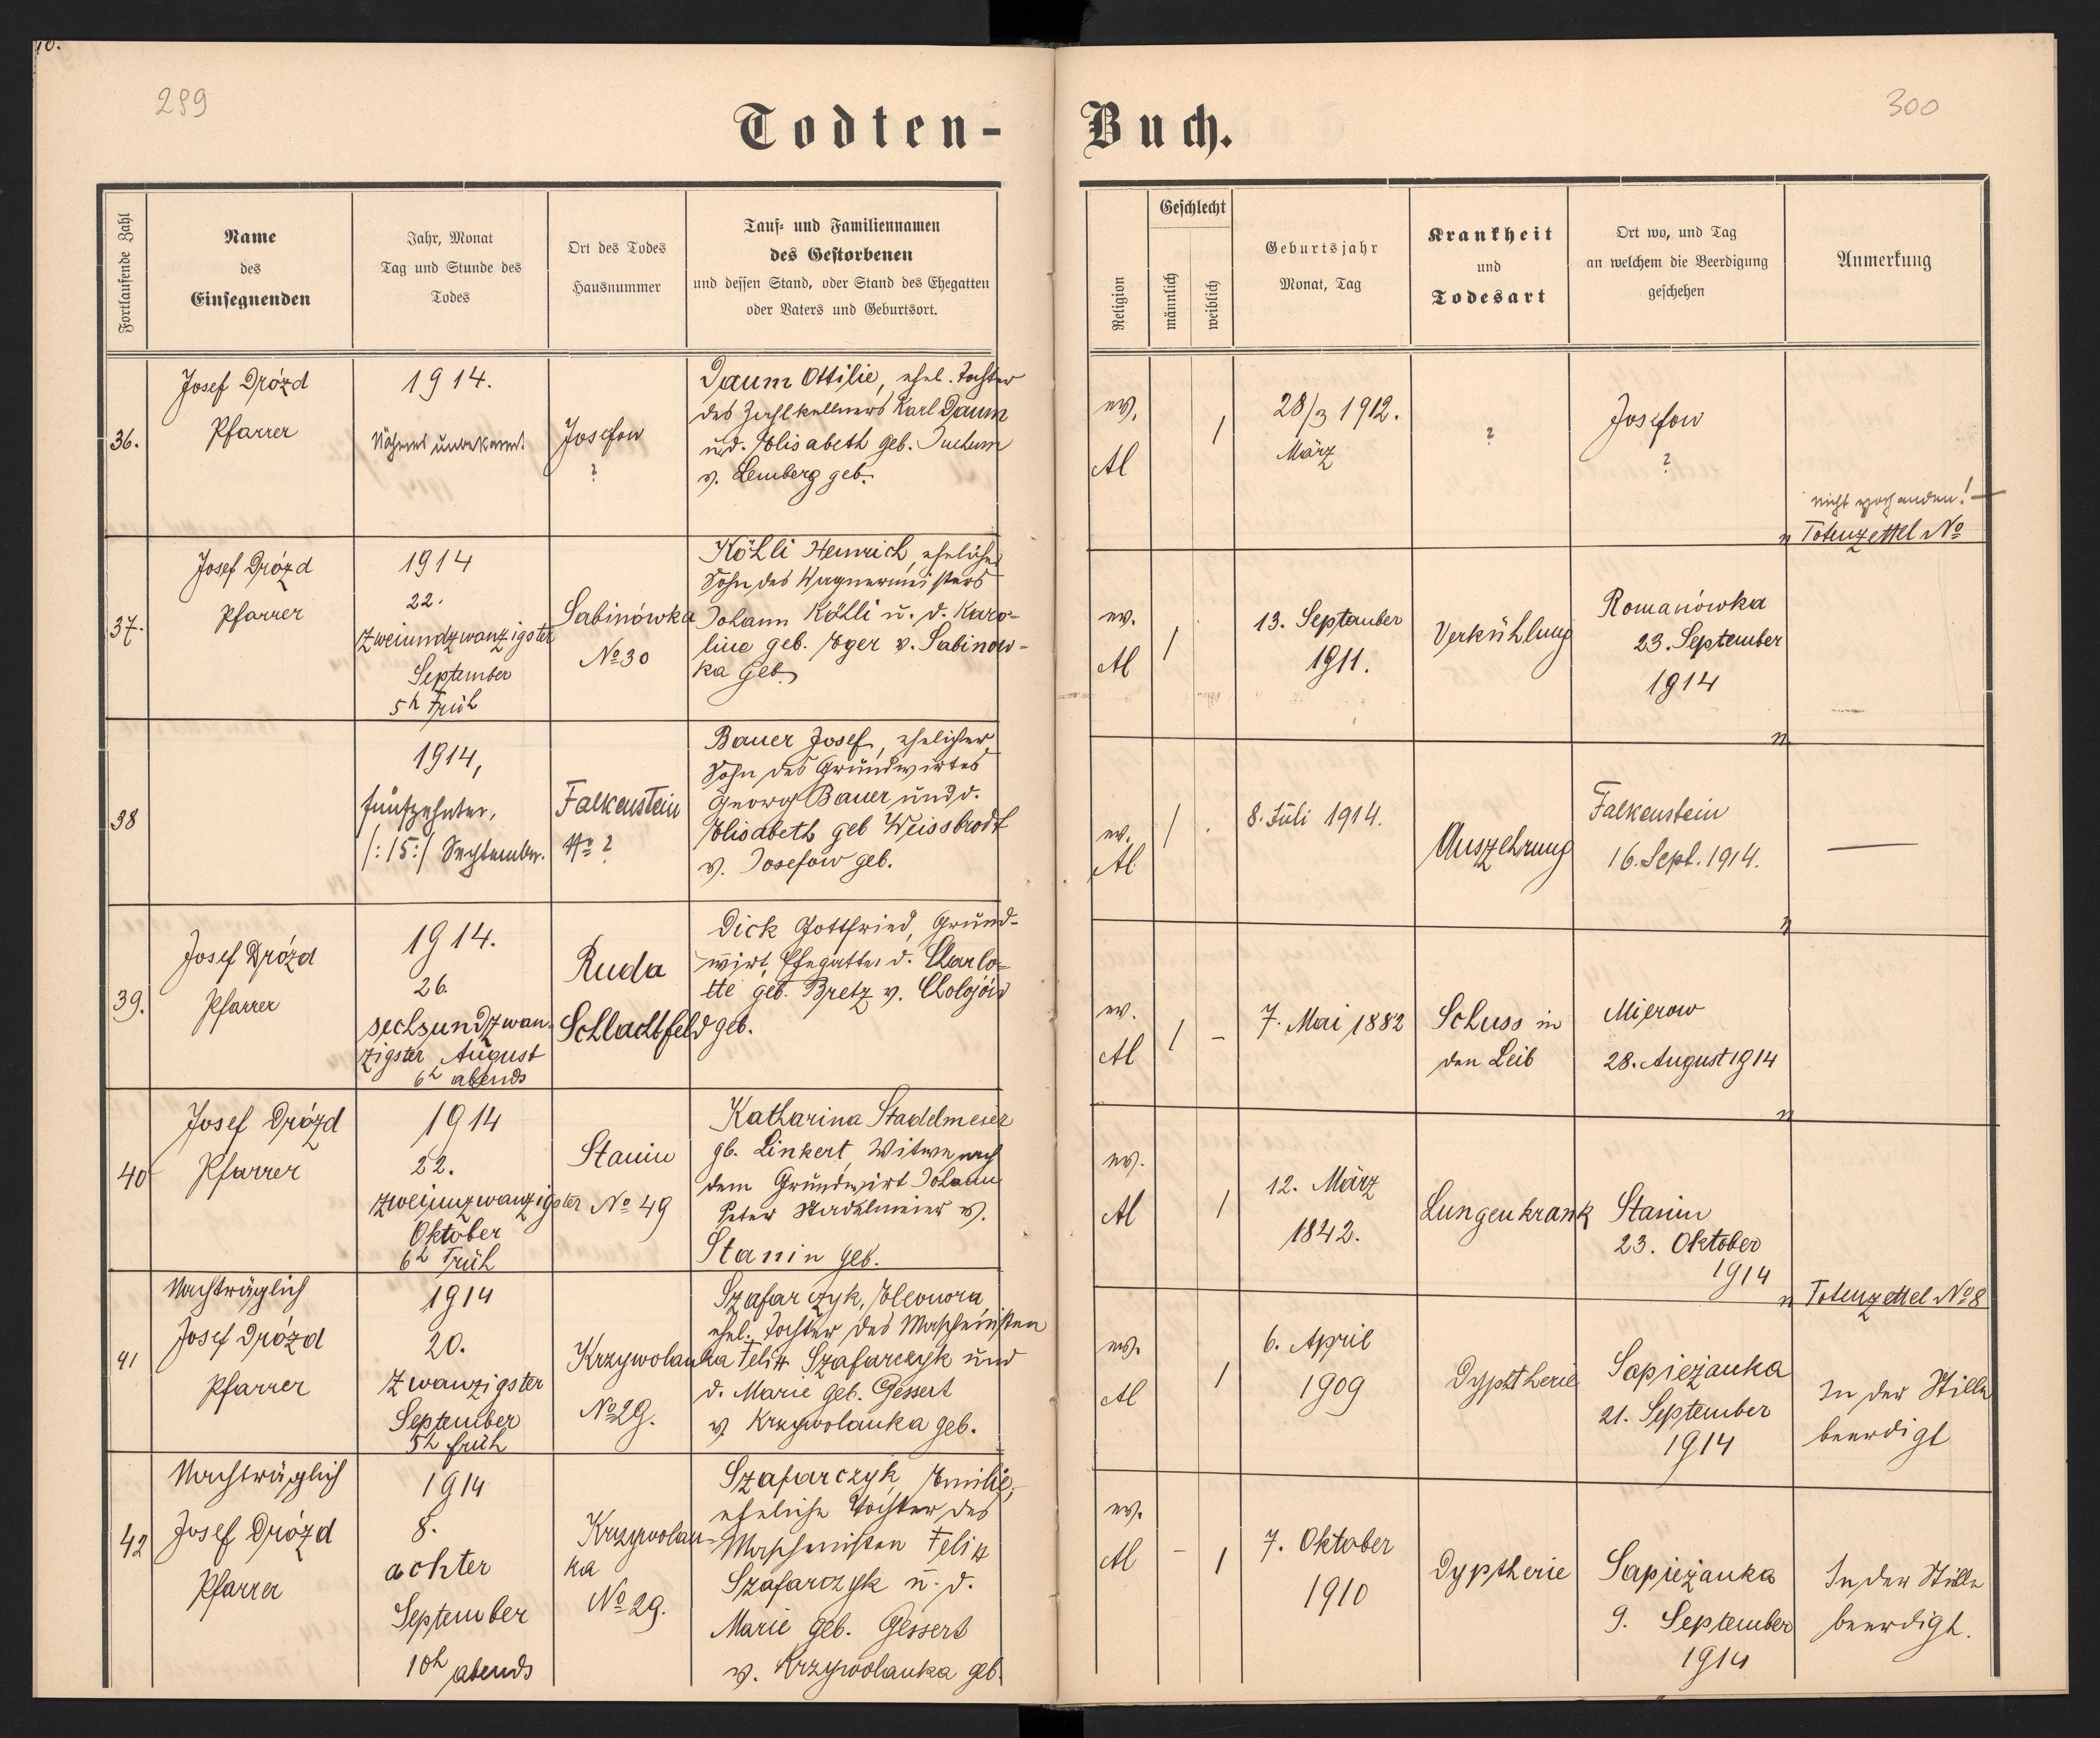 10.
299
300
Todten-Buch.
Fortlaufende Zahl
Name
des
Einsegnenden
Jahr, Monat
Tag und Stunde des
Todes
Ort des Todes
Hausnummer
Tauf- und Familiennamen
des Gestorbenen
und dessen Stand, oder Stand des Ehegatten
oder Vaters und Geburtsort.
Religion
Geschlecht
männlich
weiblich
Geburtsjahr
Monat, Tag
Krankheit
und
Todesart
Ort wo, und Tag
an welchem die Beerdigung
geschehen
Anmerkung
36.
Josef Drózd
Pfarrer
1914.
Näheres unbekannt.
Josefow
?
Daum Ottilie, ehel. Tochter
des Zahlkellners Karl Daum
u. d. Elisabeth geb.
v. Lemberg geb.
ev.
AC
1
28/3 1912.
März
?
Josefow
?
nicht vorhanden!
Totenzettel No
37.
Josef Drózd
Pfarrer
1914
22.
Zweiundzwanzigster
September
5h Früh
Sabinówka
No 30
Köhli Heinrich, ehelicher
Sohn des Wagnermeisters
Johann Köhli u. d. Karo-
line geb. Eger v. Sabinow-
ka geb.
ev.
AC
1
13. September
1911.
Verkühlung
Romanówka
23. September
1914
38
1914,
fünfzehnter,
/:15:/ September.
Falkenstein
No ?
Bauer Josef, ehelicher
Sohn des Grundwirtes
Georg Bauer und d.
Elisabeth geb Weissbrodt
v. Josefow geb.
ev.
AC
1
8. Juli 1914.
Auszehrung
Falkenstein
16. Sept. 1914.
—
39.
Josef Drózd
Pfarrer
1914.
26.
sechsundzwan-
zigster August
6h abends
Ruda
Schlachtfeld
Dick Gottfried, Grund-
wirt, Ehegatte d. Charlo-
tte geb. Bretz v. Cholojów
geb.
ev.
AC
1 -
7. Mai 1882
Schuss in
den Leib
Mierow
28. August 1914
40
Josef Drózd
Pfarrer
1914
22.
zweiunzwanzigster
Oktober
6h Früh
Stanin
No 49
Katharina Stadelmeier
gb. Linkert, Witwe nach
dem Grundwirt Johann
Peter Stadelmeier v.
Stanin geb.
ev.
AC
1
12. März
1842.
Lungenkrank
Stanin
23. Oktober
1914
Totenzettel No 8
41
Nachträglich
Josef Drózd
Pfarrer
1914
20.
Zwanzigster
September
5h früh
Krzywolanka
No 29.
Szafarczyk, Eleonora,
ehel. Tochter des Maschinisten
Felix Szafarczyk und
d. Marie geb. Gessert
v. Krzywolanka geb.
ev.
AC
1
6. April
1909
Dyptherie
Sapieżanka
21. September
1914
In der Stille
beerdigt
42
Nachträglich
Josef Drózd
Pfarrer
1914
8.
achter
September
10h abends
Krzywolan-
ka
No 29.
Szafarczyk, Emilie,
eheliche Tochter des
Maschinisten Felix
Szafarczyk u. d.
Marie geb. Gessert
v. Krzywolanka geb.
ev.
AC
- 1
7. Oktober
1910
Dyptherie
Sapieżanka
9. September
1914
In der Stille
beerdigt.